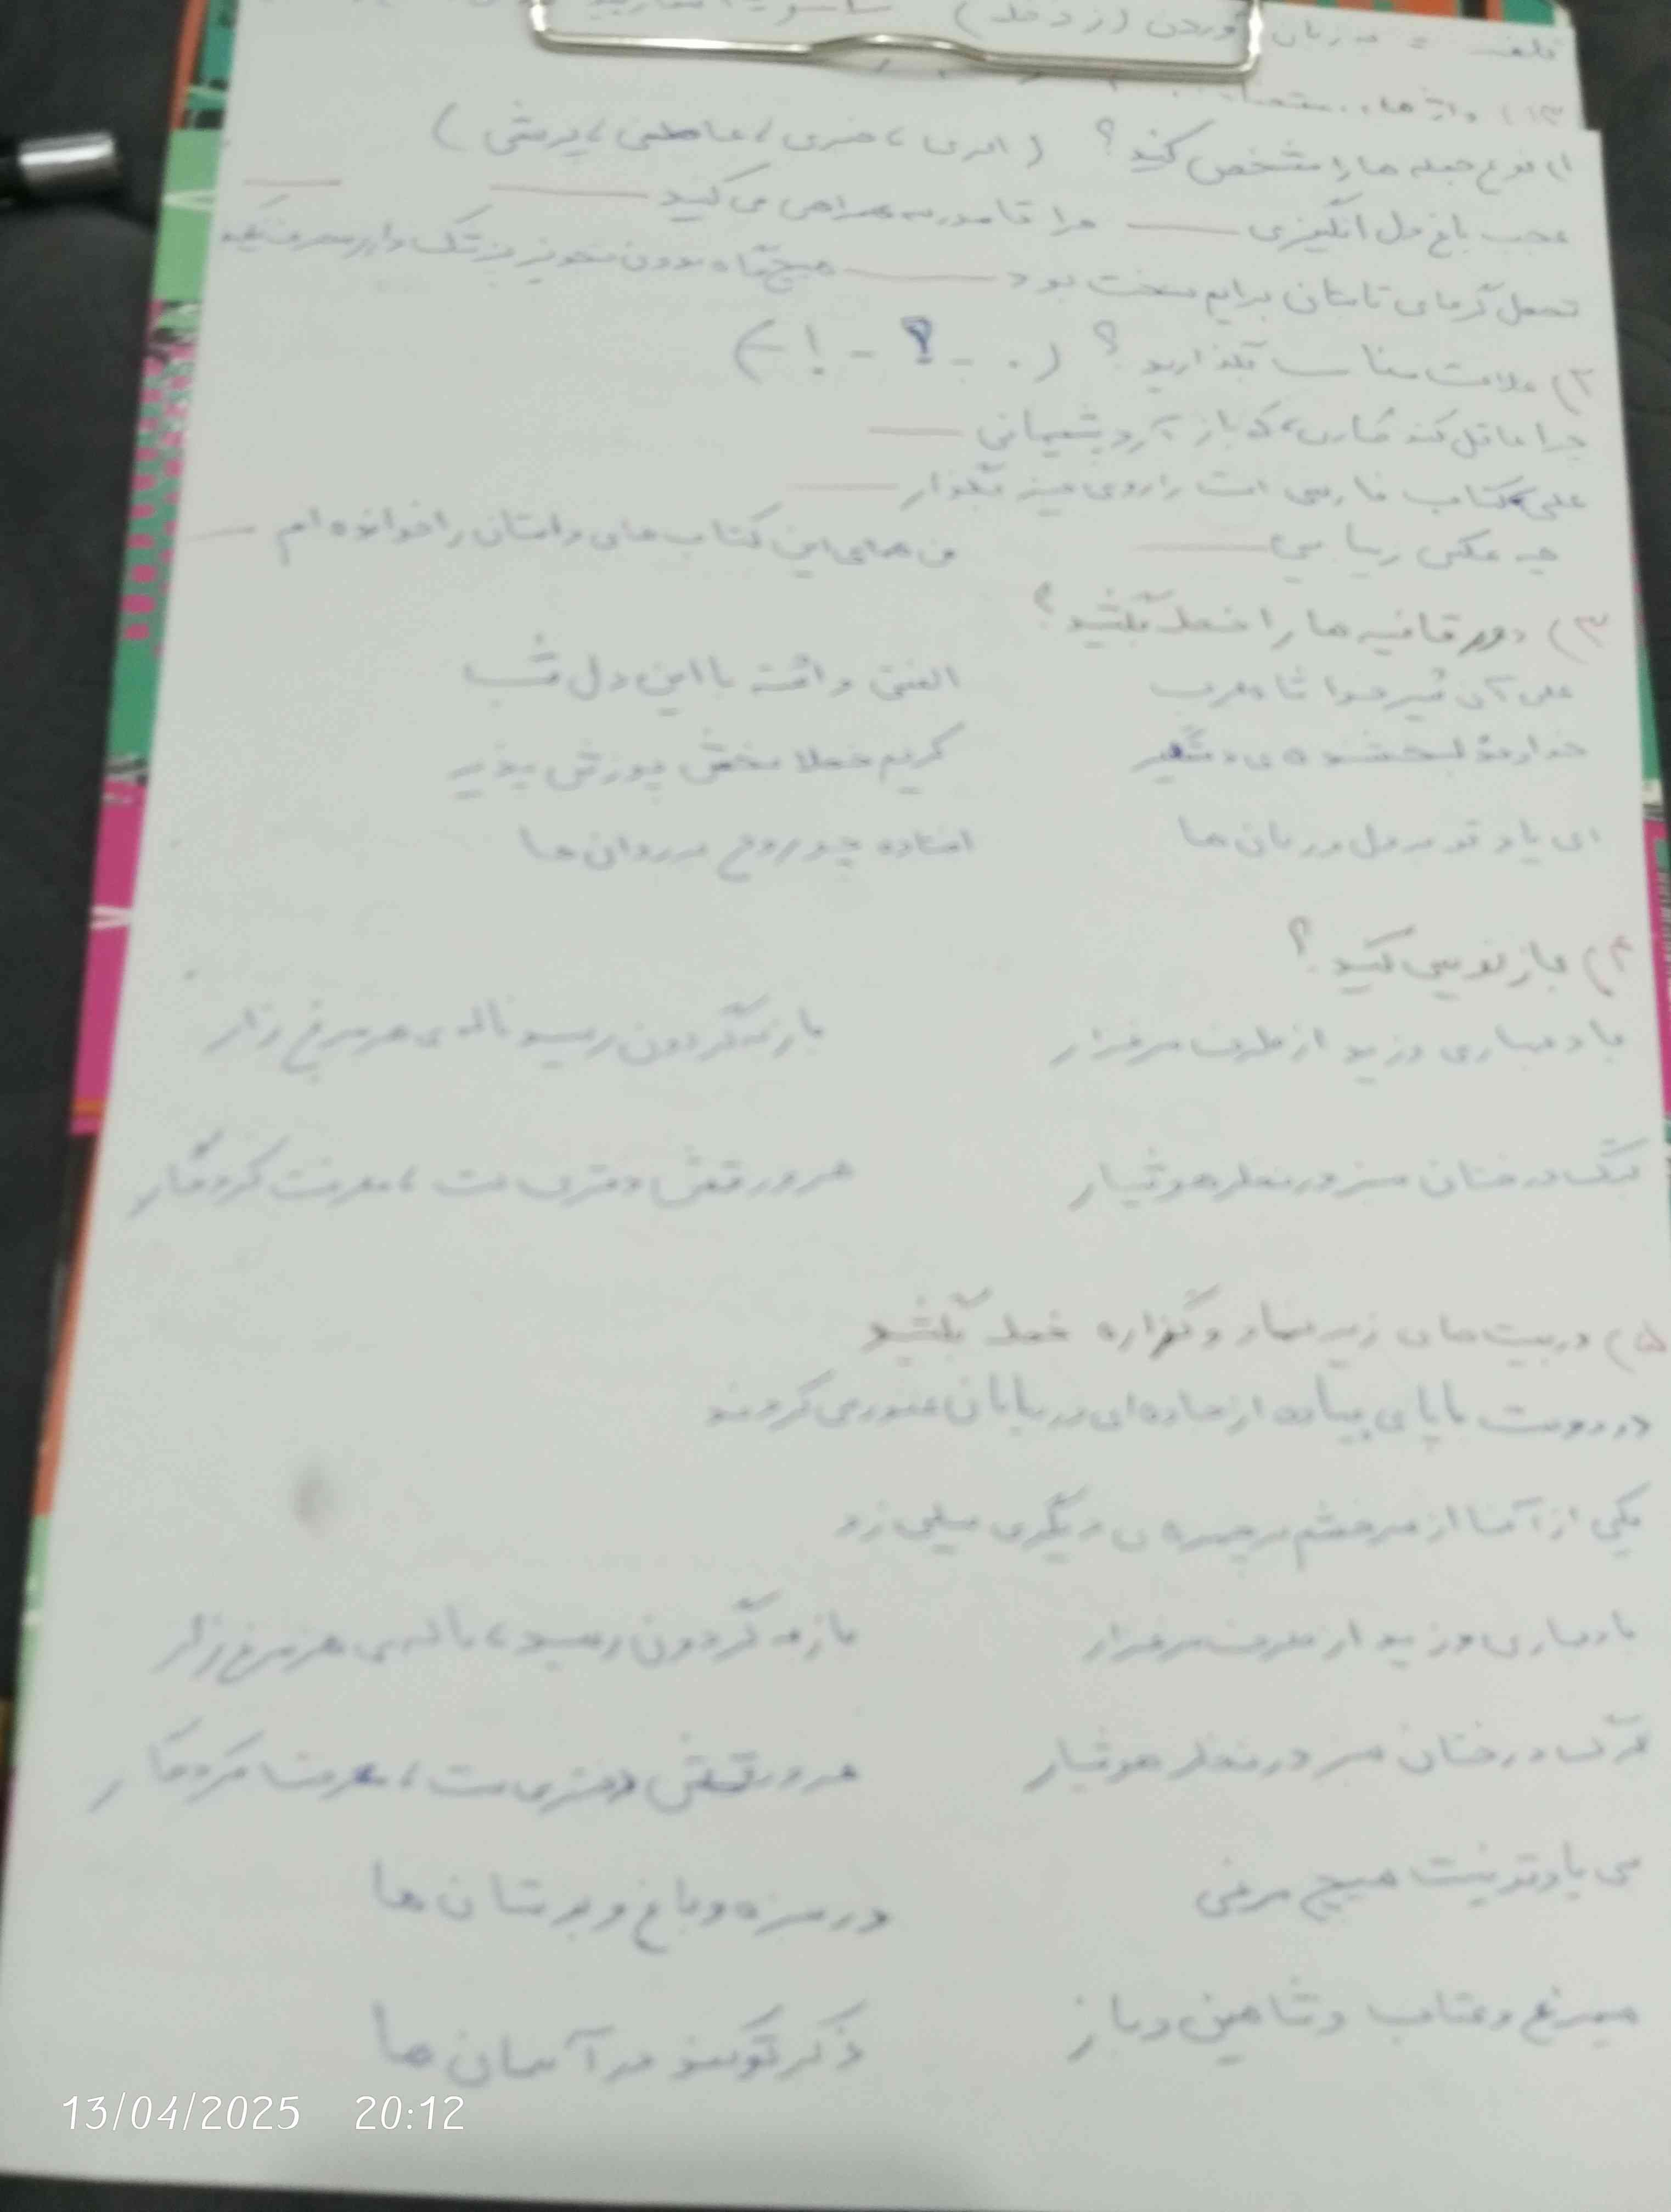 تلفظ = به زبان آوردن (از دهان)
۱) نوع جمله ها را مشخص کنید؟ (امری، خبری، عاطفی، پرسشی)
عجب باغ دل انگیزی ـــــ مرا تا مدرسه همراهی می کنید ـــــ
تحمل گرمای تابستان برایم سخت بود ـــــ هیچگاه بدون تجویز پزشک دارو مصرف نکنید
۲) علامت مناسب بگذارید؟ (. - ؟ - ! -)
چرا عاقل کند کاری، که باز آرد پشیمانی ـــــ
علی کتاب فارسی ات را روی میز بگذار ـــــ
چه عکس زیبایی ـــــ من همه ی این کتاب های داستان را خوانده ام ـــــ
۳) دور قافیه ها را خط بکشید؟
علی آن شیر خدا شاه عرب الفتی داشته با این دل شب
خداوند بخشنده ی دستگیر کریم خطا بخش پوزش پذیر
ای یاد تو در دل و زبان ها افتاده چو روح در روان ها
۴) بازنویسی کنید؟
باد بهاری وزید از طرف مرغزار باز به گردون رسید ناله ی هر مرغ زار
برگ درختان سبز در نظر هوشیار هر ورقش دفتری ست، معرفت کردگار
۵) در بیت های زیر نهاد و گزاره خط بکشید
دو دوست با پای پیاده از جاده ای در بیابان عبور می کردند
یکی از آنها از سر خشم بر چهره ی دیگری سیلی زد
باد بهاری وزید از طرف مرغزار باز به گردون رسید، ناله ی هر مرغ زار
برگ درختان سبز در نظر هوشیار هر ورقش دفتری ست، معرفت کردگار
بی یاد تو نیست هیچ مرغی در سبزه و باغ و بوستان ها
سیمرغ و عقاب و شاهین و باز ذکر تو کنند در آسمان ها
13/04/2025 20:12